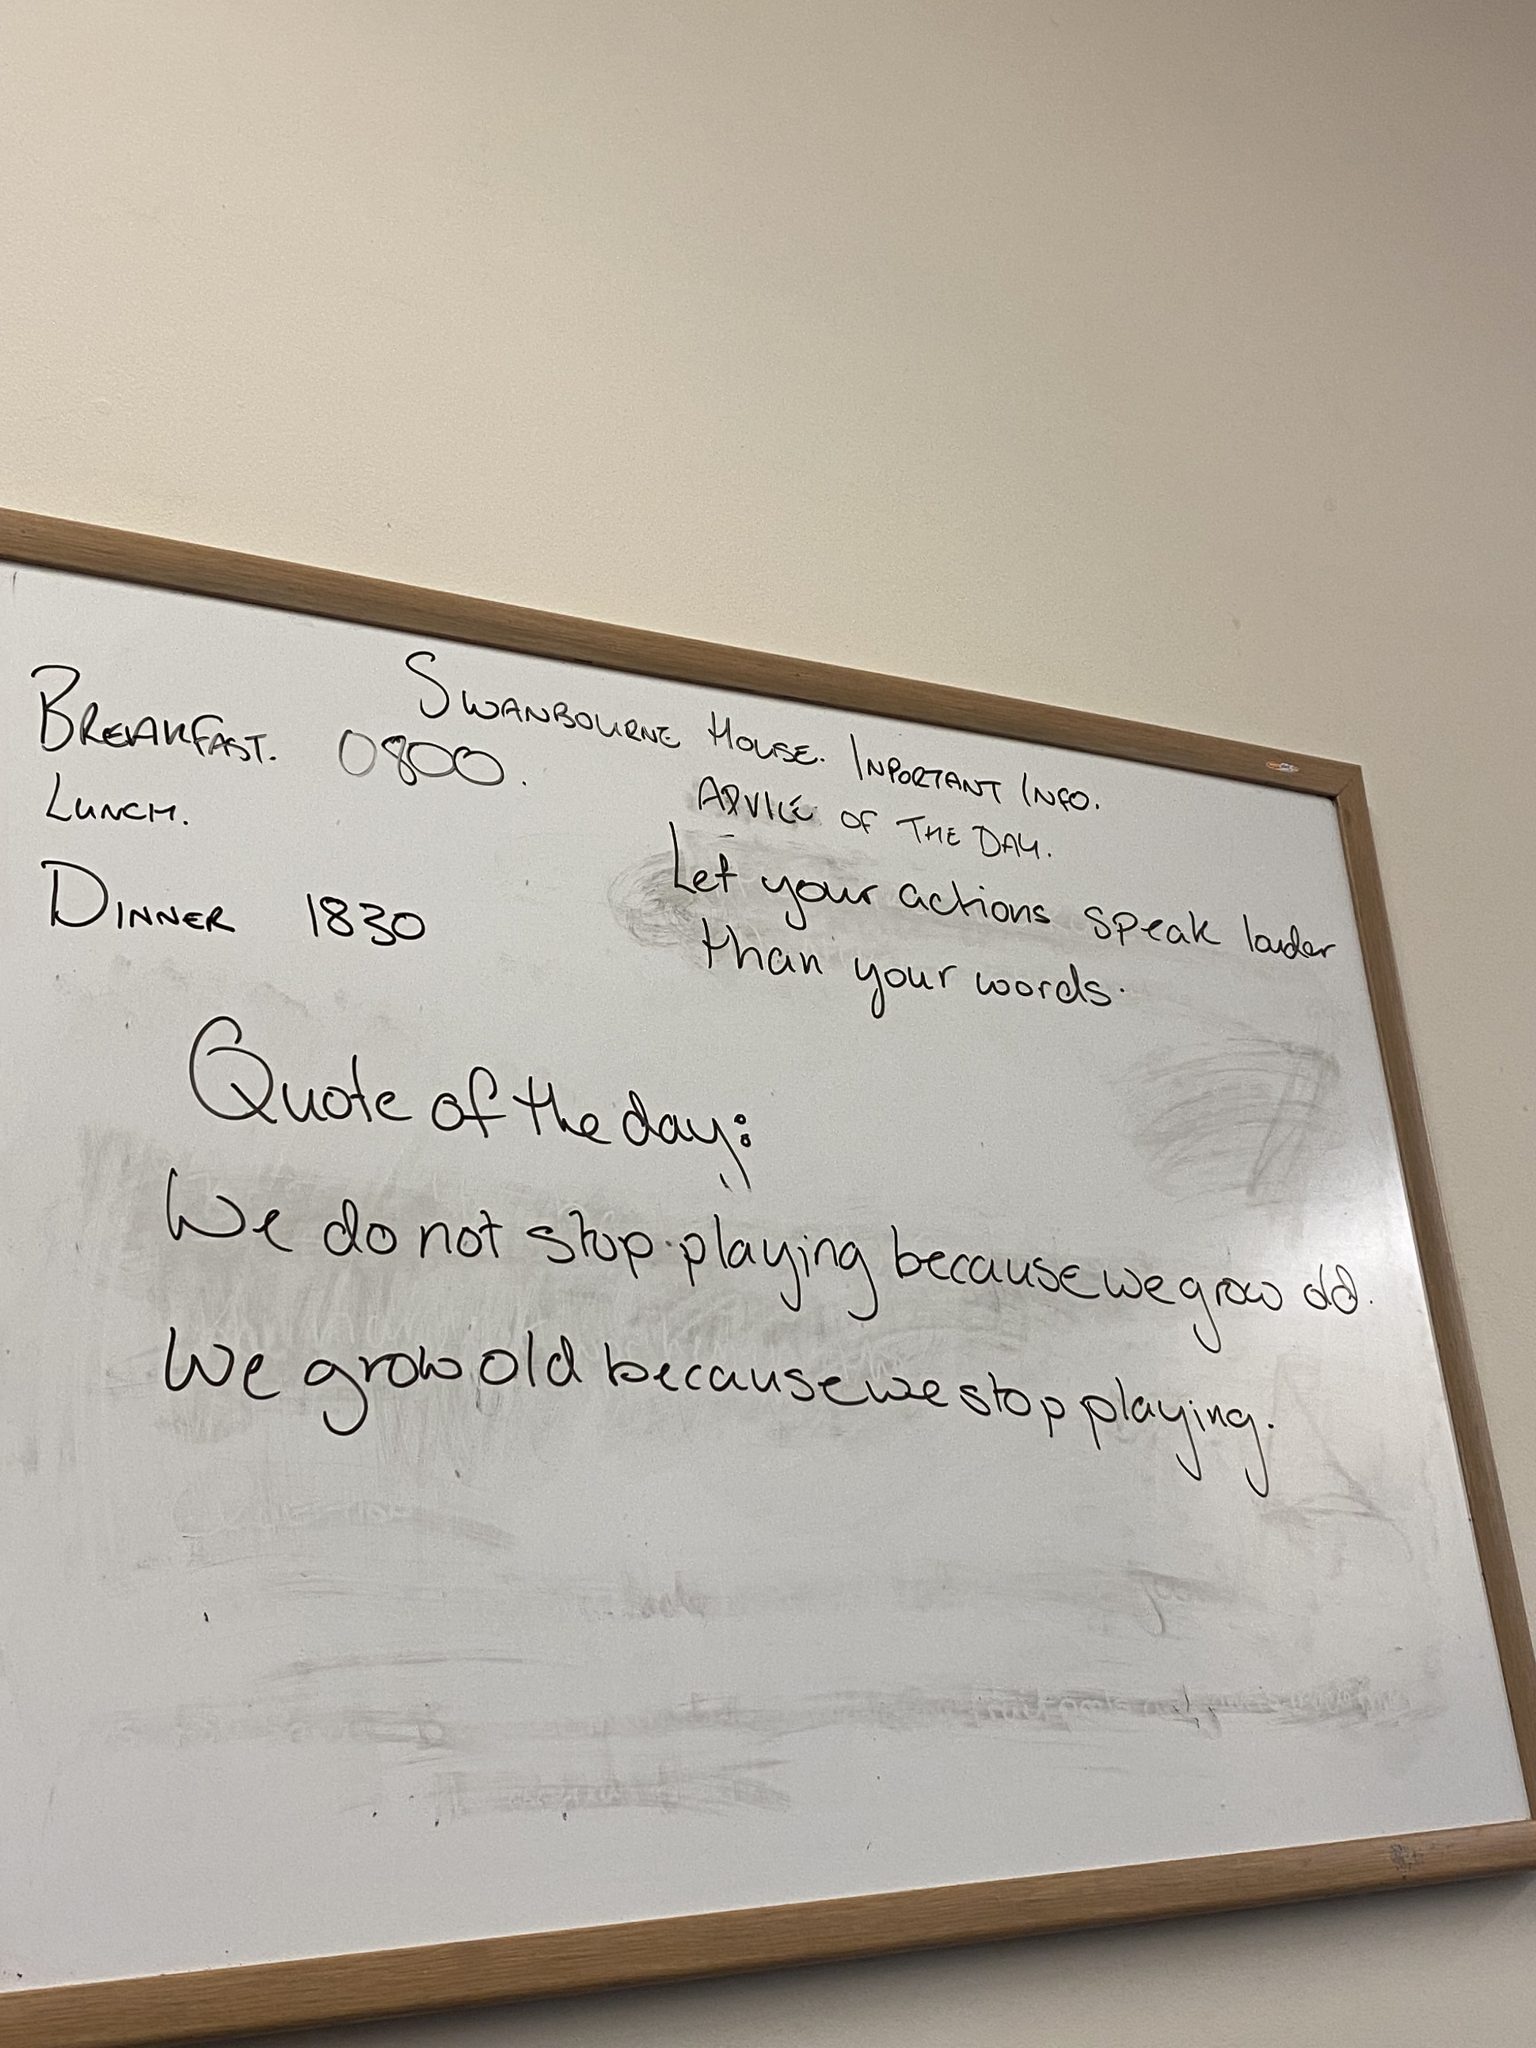 SWANBOURNE HOUSE. INPORTANT INFO.
BREAKFAST. 0800.
LUNCH.
DINNER 1830
ADVICE OF THE DAY.
Let your actions speak louder
than your words.
Quote of the day:
We do not stop playing because we grow old.
We grow old because we stop playing.